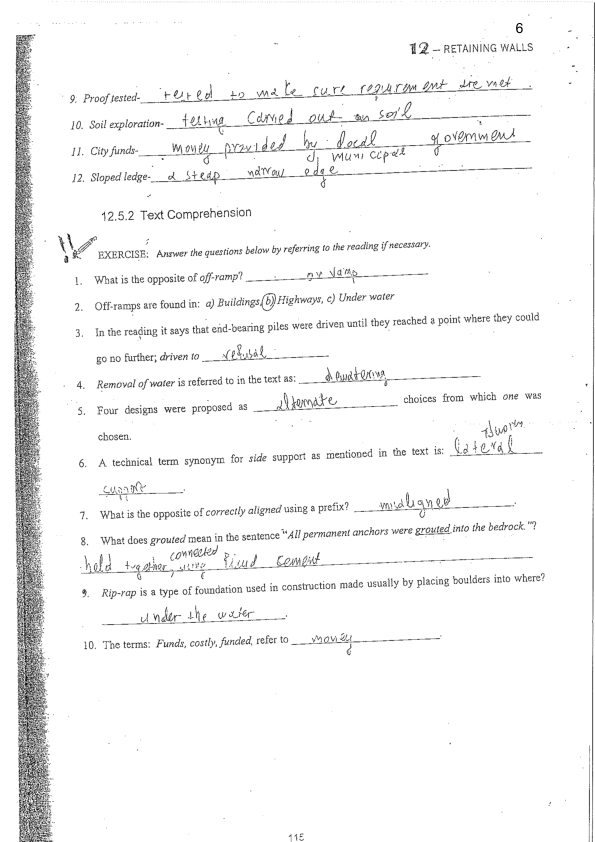 6
12 – RETAINING WALLS
9. Proof tested- tested to make sure requirement are met.
10. Soil exploration- testing carried out on soil
11. City funds- money provided by local government
municipal
12. Sloped ledge- a steap narrow edge
12.5.2 Text Comprehension
EXERCISE: Answer the questions below by referring to the reading if necessary.
1. What is the opposite of off-ramp? on ramp
2. Off-ramps are found in: a) Buildings, b) Highways, c) Under water
3. In the reading it says that end-bearing piles were driven until they reached a point where they could
go no further; driven to refusal
4. Removal of water is referred to in the text as: dewatering
5. Four designs were proposed as alternate choices from which one was
chosen.
6. A technical term synonym for side support as mentioned in the text is: lateral
support.
7. What is the opposite of correctly aligned using a prefix? misaligned.
8. What does grouted mean in the sentence "All permanent anchors were grouted into the bedrock."?
connected
held together, using liquid cement
9. Rip-rap is a type of foundation used in construction made usually by placing boulders into where?
under the water.
10. The terms: Funds, costly, funded, refer to money.
115